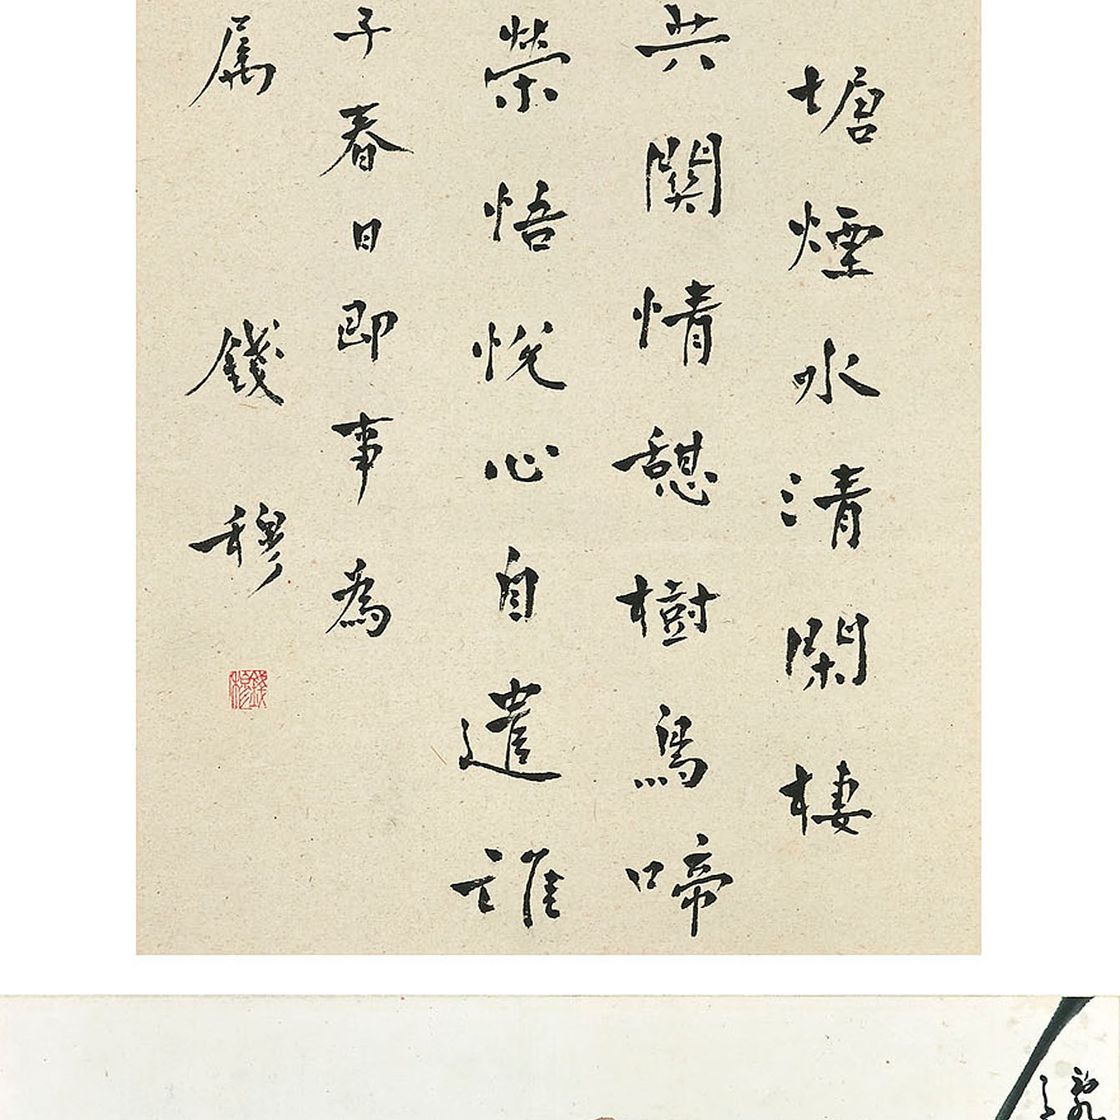 塘煙水清閑棲
共關情憩樹鳥啼
榮悟悅心自遣誰
子春日即事為
属 錢穆
錢穆